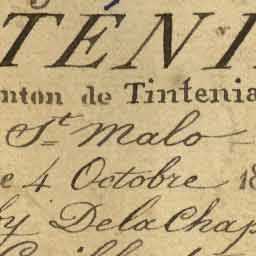 TÉNI
nton de Tintenia
St Malo
e 4 Octobre 18
by DelaChap